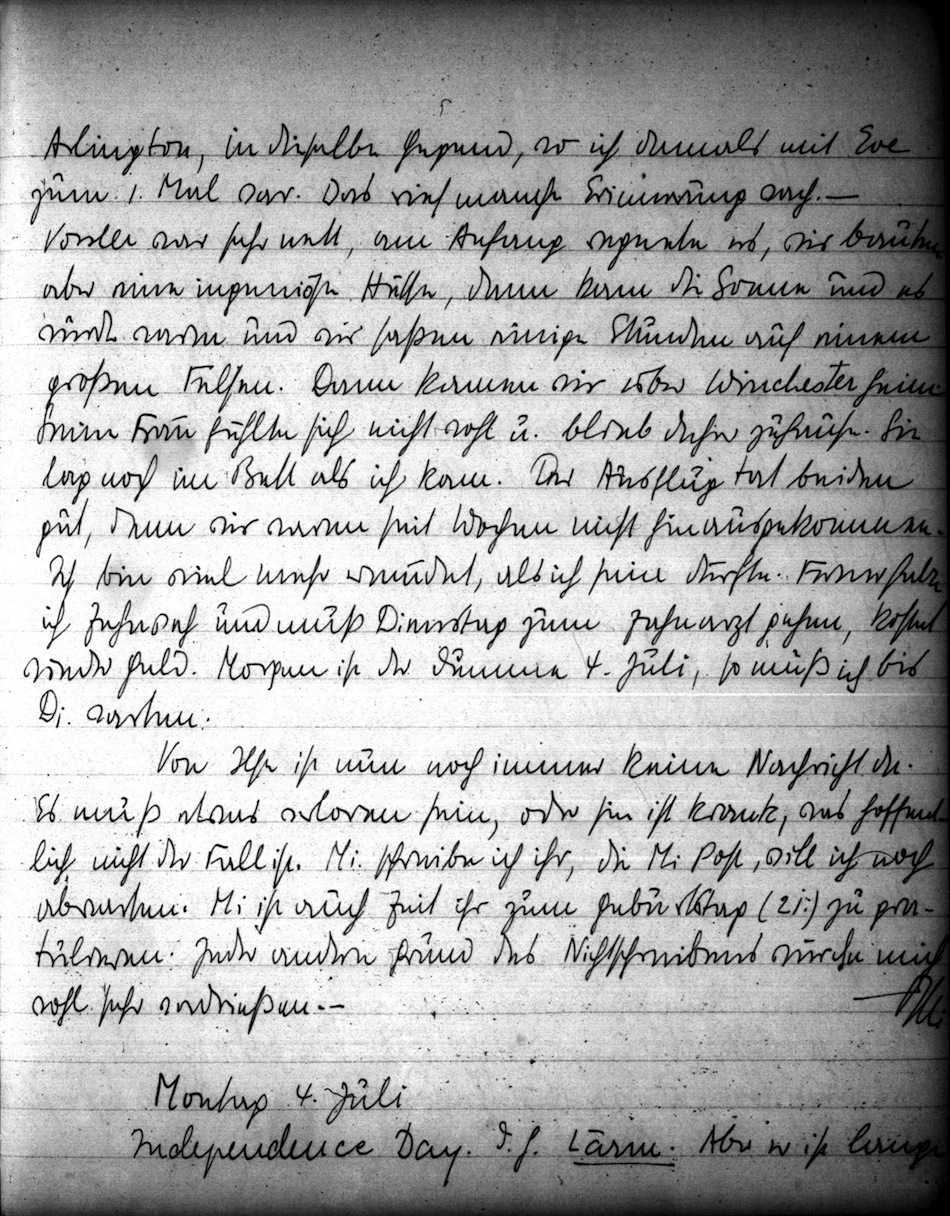 Arlington, in dieselbe Gegend, wo ich damals mit Eve
zum 1. Mal war. Das rief manche Erinnerung wach.—
war sehr nett, am Anfang regnete es, wir bauten
aber eine ingeniöse Hütte, dann kam die Sonne und es
wurde warm und wir saßen einige Stunden auf einem
großen Felsen. Dann kamen wir über Winchester heim
Seine Frau fühlte sich nicht wohl u. blieb daher zuhause. Sie
lag noch im Bett als ich kam. Der Ausflug tat beiden
gut, denn wir waren seit Wochen nicht hinausgekommen.
Ich bin viel mehr ermüdet, als ich sein dürfte. Ferner habe
ich Zahnweh und muß Dienstag zum Zahnarzt gehen, kostet
wieder Geld. Morgen ist der dumme 4. Juli, so muß ich bis
Di. warten.
Von Ilse ist nun noch immer keine Nachricht da.
Es muß etwas verloren sein, oder sie ist krank, was hoffent-
lich nicht der Fall ist. Mi. schreibe ich ihr, die Mi Post, will ich noch
abwarten. Mi ist auch Zeit ihr zum Geburtstag (21.) zu gra-
tulieren. Jeder andere Grund des Nichtschreibens würde mich
wohl sehr verdrießen.—
Montag 4. Juli
Independence Day. D. h. Lärm. Aber er ist lange